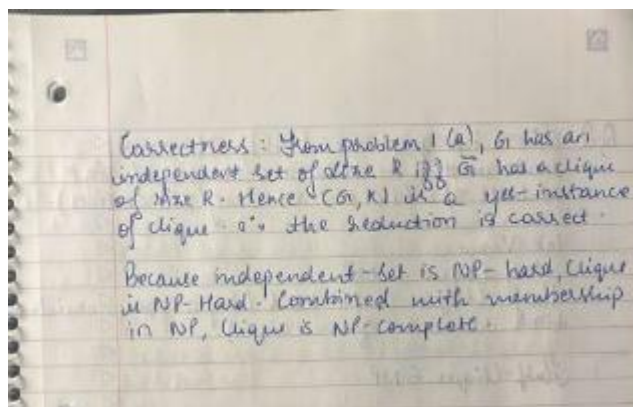 Correctness: From problem 1 (a), G has an
independent set of size k iff G̅ has a clique
of size k. Hence (G, K) is a yes-instance
of clique ∴ the reduction is correct.
Because independent-set is NP-hard, Clique
is NP-Hard. Combined with membership
in NP, Clique is NP-complete.